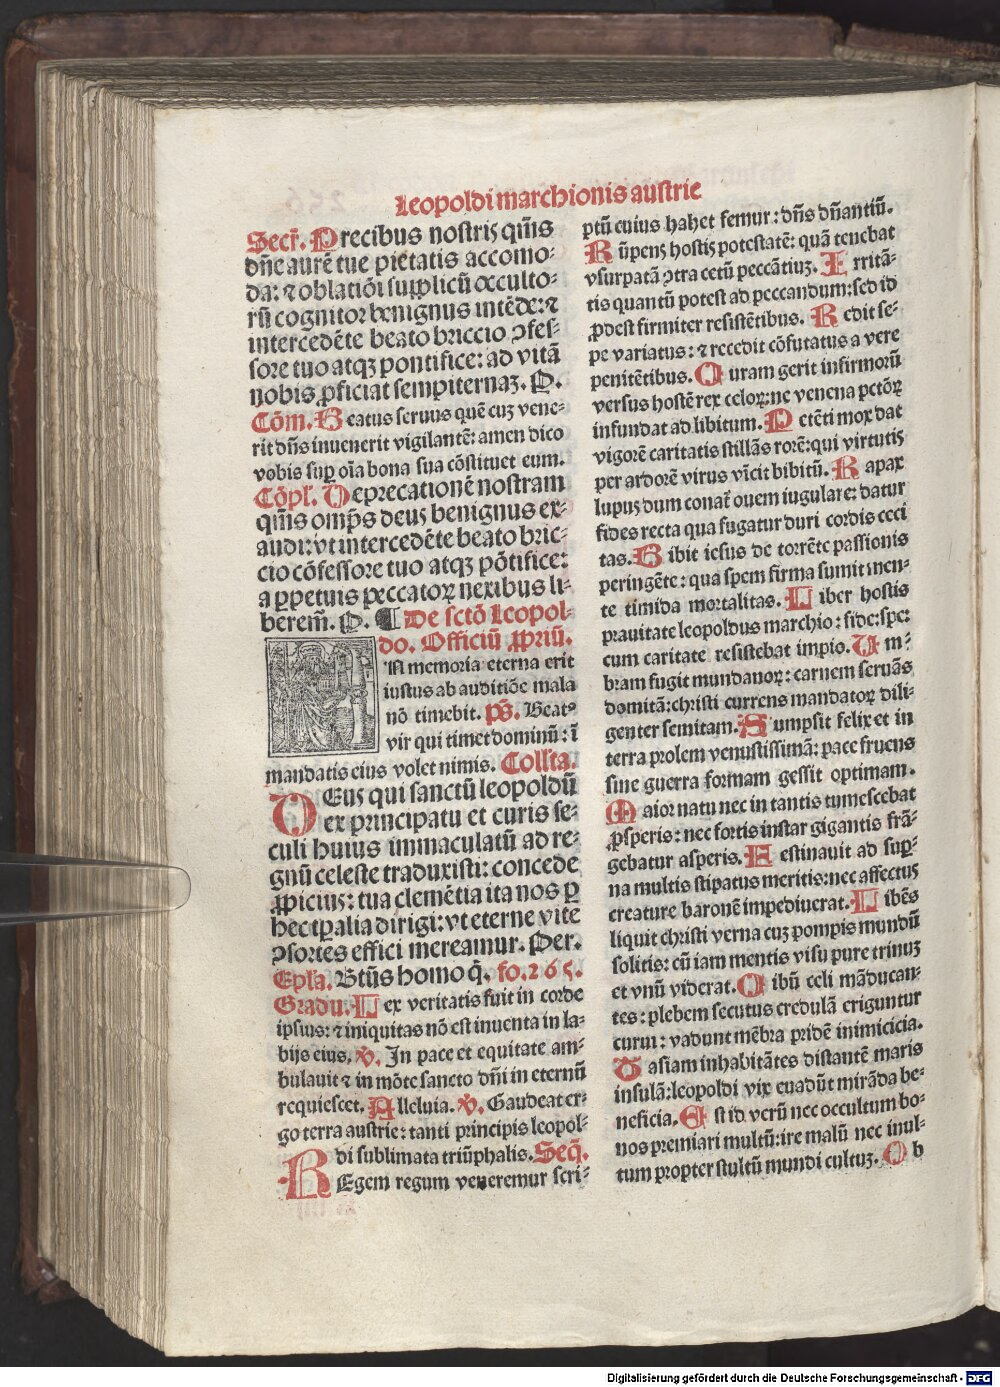 Leopoldi marchionis austrie
Secr̄. Precibus nostris q̄m̄s
dn̄e aurē tue pietatis accomo⸗
da: ⁊ oblatiōi supplicū occulto⸗
rū cognitor benignus intēde: ⁊
intercedēte beato briccio ↄfes⸗
sore tuo atqꝫ pontifice: ad vitā
nobis ꝓficiat sempiternaꝫ. P.
Cōm. Beatus seruus quē cuꝫ vene⸗
rit dn̄s inuenerit vigilantē: amen dico
vobis suꝑ oīa bona sua cōstituet eum.
Cōpl'. Deprecationē nostram
q̄m̄s omp̄s deus benignus ex⸗
audi: vt intercedēte beato bric⸗
cio cōfessore tuo atqꝫ pōtifice:
a ꝑpetuis peccatoꝝ nexibus li⸗
berem̄. P. ¶ De sctō Leopol⸗
do. Officiū ꝓpriū.
IN memoria eterna erit
iustus ab auditiōe mala
nō timebit. p̄s. Beatꝰ
vir qui timet dominū: ī
mandatis eius volet nimis. Coll'ta.
DEus qui sanctū leopoldū
ex principatu et curis se⸗
culi huius immaculatū ad re⸗
gnū celeste traduxisti: concede
ꝓpicius: tua clemētia ita nos ꝑ
hec tꝑalia dirigi: vt eterne vite
ↄsortes effici mereamur. Per.
Epl'a. Btūs homo q̄. fo. 265.
Gradu. Lex veritatis fuit in corde
ipsius: ⁊ iniquitas nō est inuenta in la⸗
bijs eius. ℣. In pace et equitate am⸗
bulauit ⁊ in mōte sancto dn̄i in eternū
requiescet. Alleluia. ℣. Gaudeat er⸗
go terra austrie: tanti principis leopol⸗
di sublimata triūphalis. Seq̄.
REgem regum veneremur scri⸗
ptū cuius habet femur: dn̄s dn̄antiū.
Rūpens hostis potestatē: quā tenebat
vsurpatā ↄtra cetū peccātiuꝫ. Irritā⸗
tis quantū potest ad peccandum: sed id
ꝓdest firmiter resistētibus. Redit se⸗
pe variatus: ⁊ recedit cōfutatus a vere
penitētibus. Curam gerit infirmorū
versus hostē rex celoꝝ: ne venena pctōꝝ
infundat ad libitum. Petēti mox dat
vigorē caritatis stillās rorē: qui virtutis
per ardorē virus vīcit bibitū. Rapax
lupus dum conat̄ ouem iugulare: datur
fides recta qua fugatur duri cordis ceci
tas. Bibit iesus de torrēte passionis
peringēte: qua spem firma sumit men⸗
te timida mortalitas. Liber hostis
prauitate leopoldus marchio: fide: spe:
cum caritate resistebat impio. Um⸗
bram fugit mundanoꝝ: carnem seruās
domitā: christi currens mandatoꝝ dili⸗
genter semitam. Sumpsit felix et in
terra prolem venustissimā: pace fruens
sine guerra formam gessit optimam.
Maior natu nec in tantis tumescebat
ꝓsperis: nec fortis instar gigantis frā⸗
gebatur asperis. Festinauit ad suꝑ⸗
na multis stipatus meritis: nec affectus
creature baronē impediuerat. Libēs
liquit christi verna cuꝫ pompis mundū
solitis: cū iam mentis visu pure trinuꝫ
et vnū viderat. Cibū celi māducan⸗
tes: plebem secutus credulā eriguntur
curui: vadunt mēbra pridē inimicicia.
Tasiam inhabitātes distantē maris
insulā: leopoldi vix euadūt mirāda be⸗
neficia. Est id verū nec occultum bo⸗
nos premiari multū: ire malū nec inul⸗
tum propter stultū mundi cultuꝫ. Ob
Digitalisierung gefördert durch die Deutsche Forschungsgemeinschaft - DFG